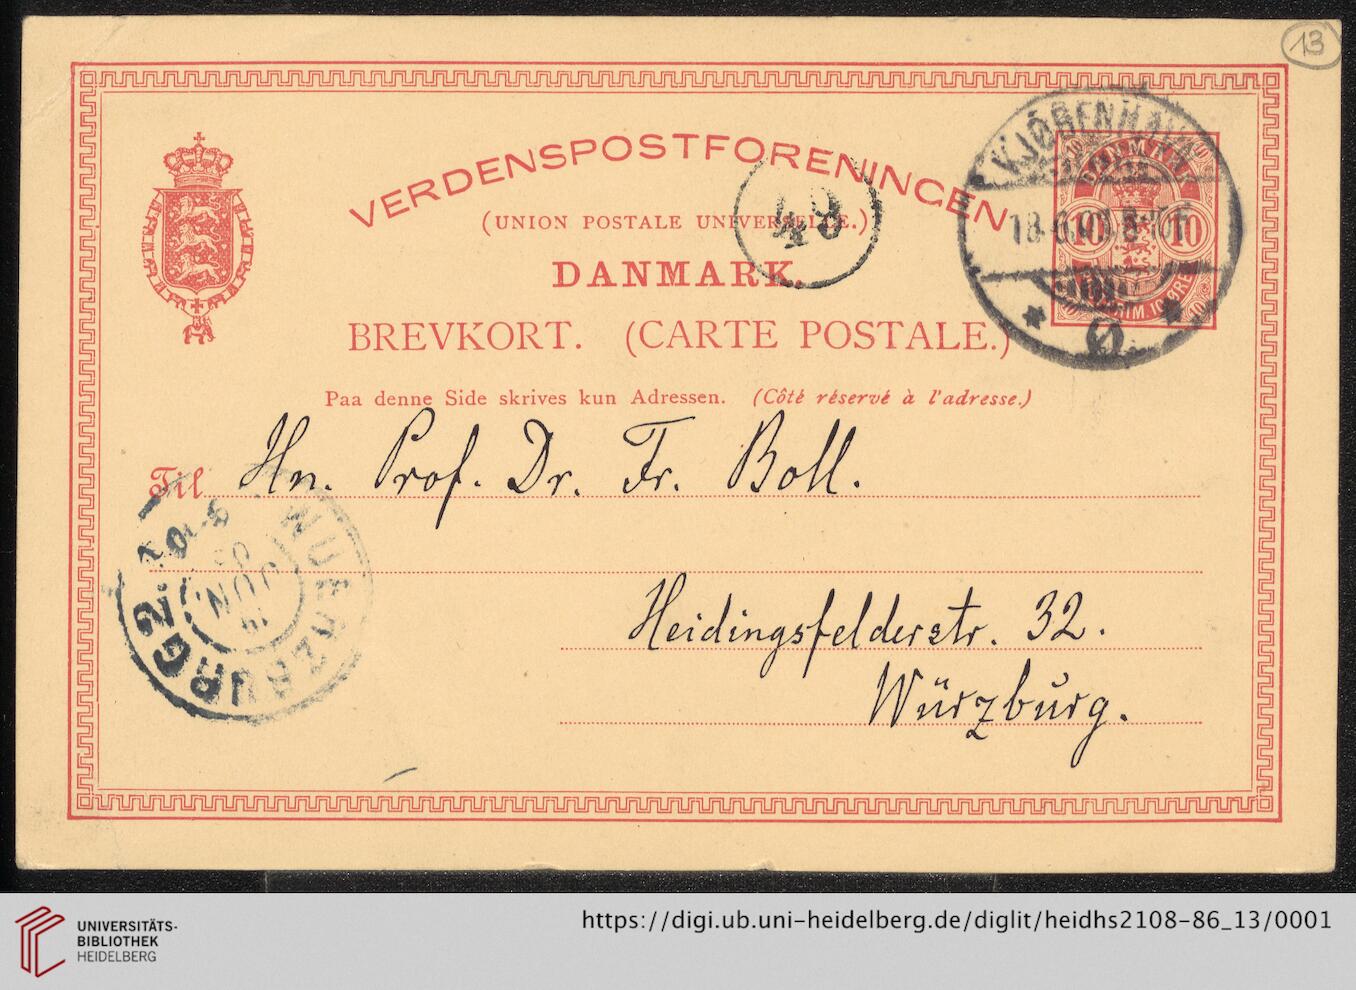 13
VERDENSPOSTFORENINGEN
(UNION POSTALE UNIVERSELLE.)
DANMARK.
BREVKORT. (CARTE POSTALE.)
Paa denne Side skrives kun Adressen. (Côté réservé à l'adresse.)
KJØBENHAVN
DANMARK
10 10
10 ØRE
Ø.
Til Hn. Prof. Dr. Fr. Boll.
Heidingsfelderstr. 32.
Würzburg.
WUERZBURG 2
JUN
UNIVERSITÄTS-
BIBLIOTHEK
HEIDELBERG
https://digi.ub.uni-heidelberg.de/diglit/heidhs2108-86_13/0001